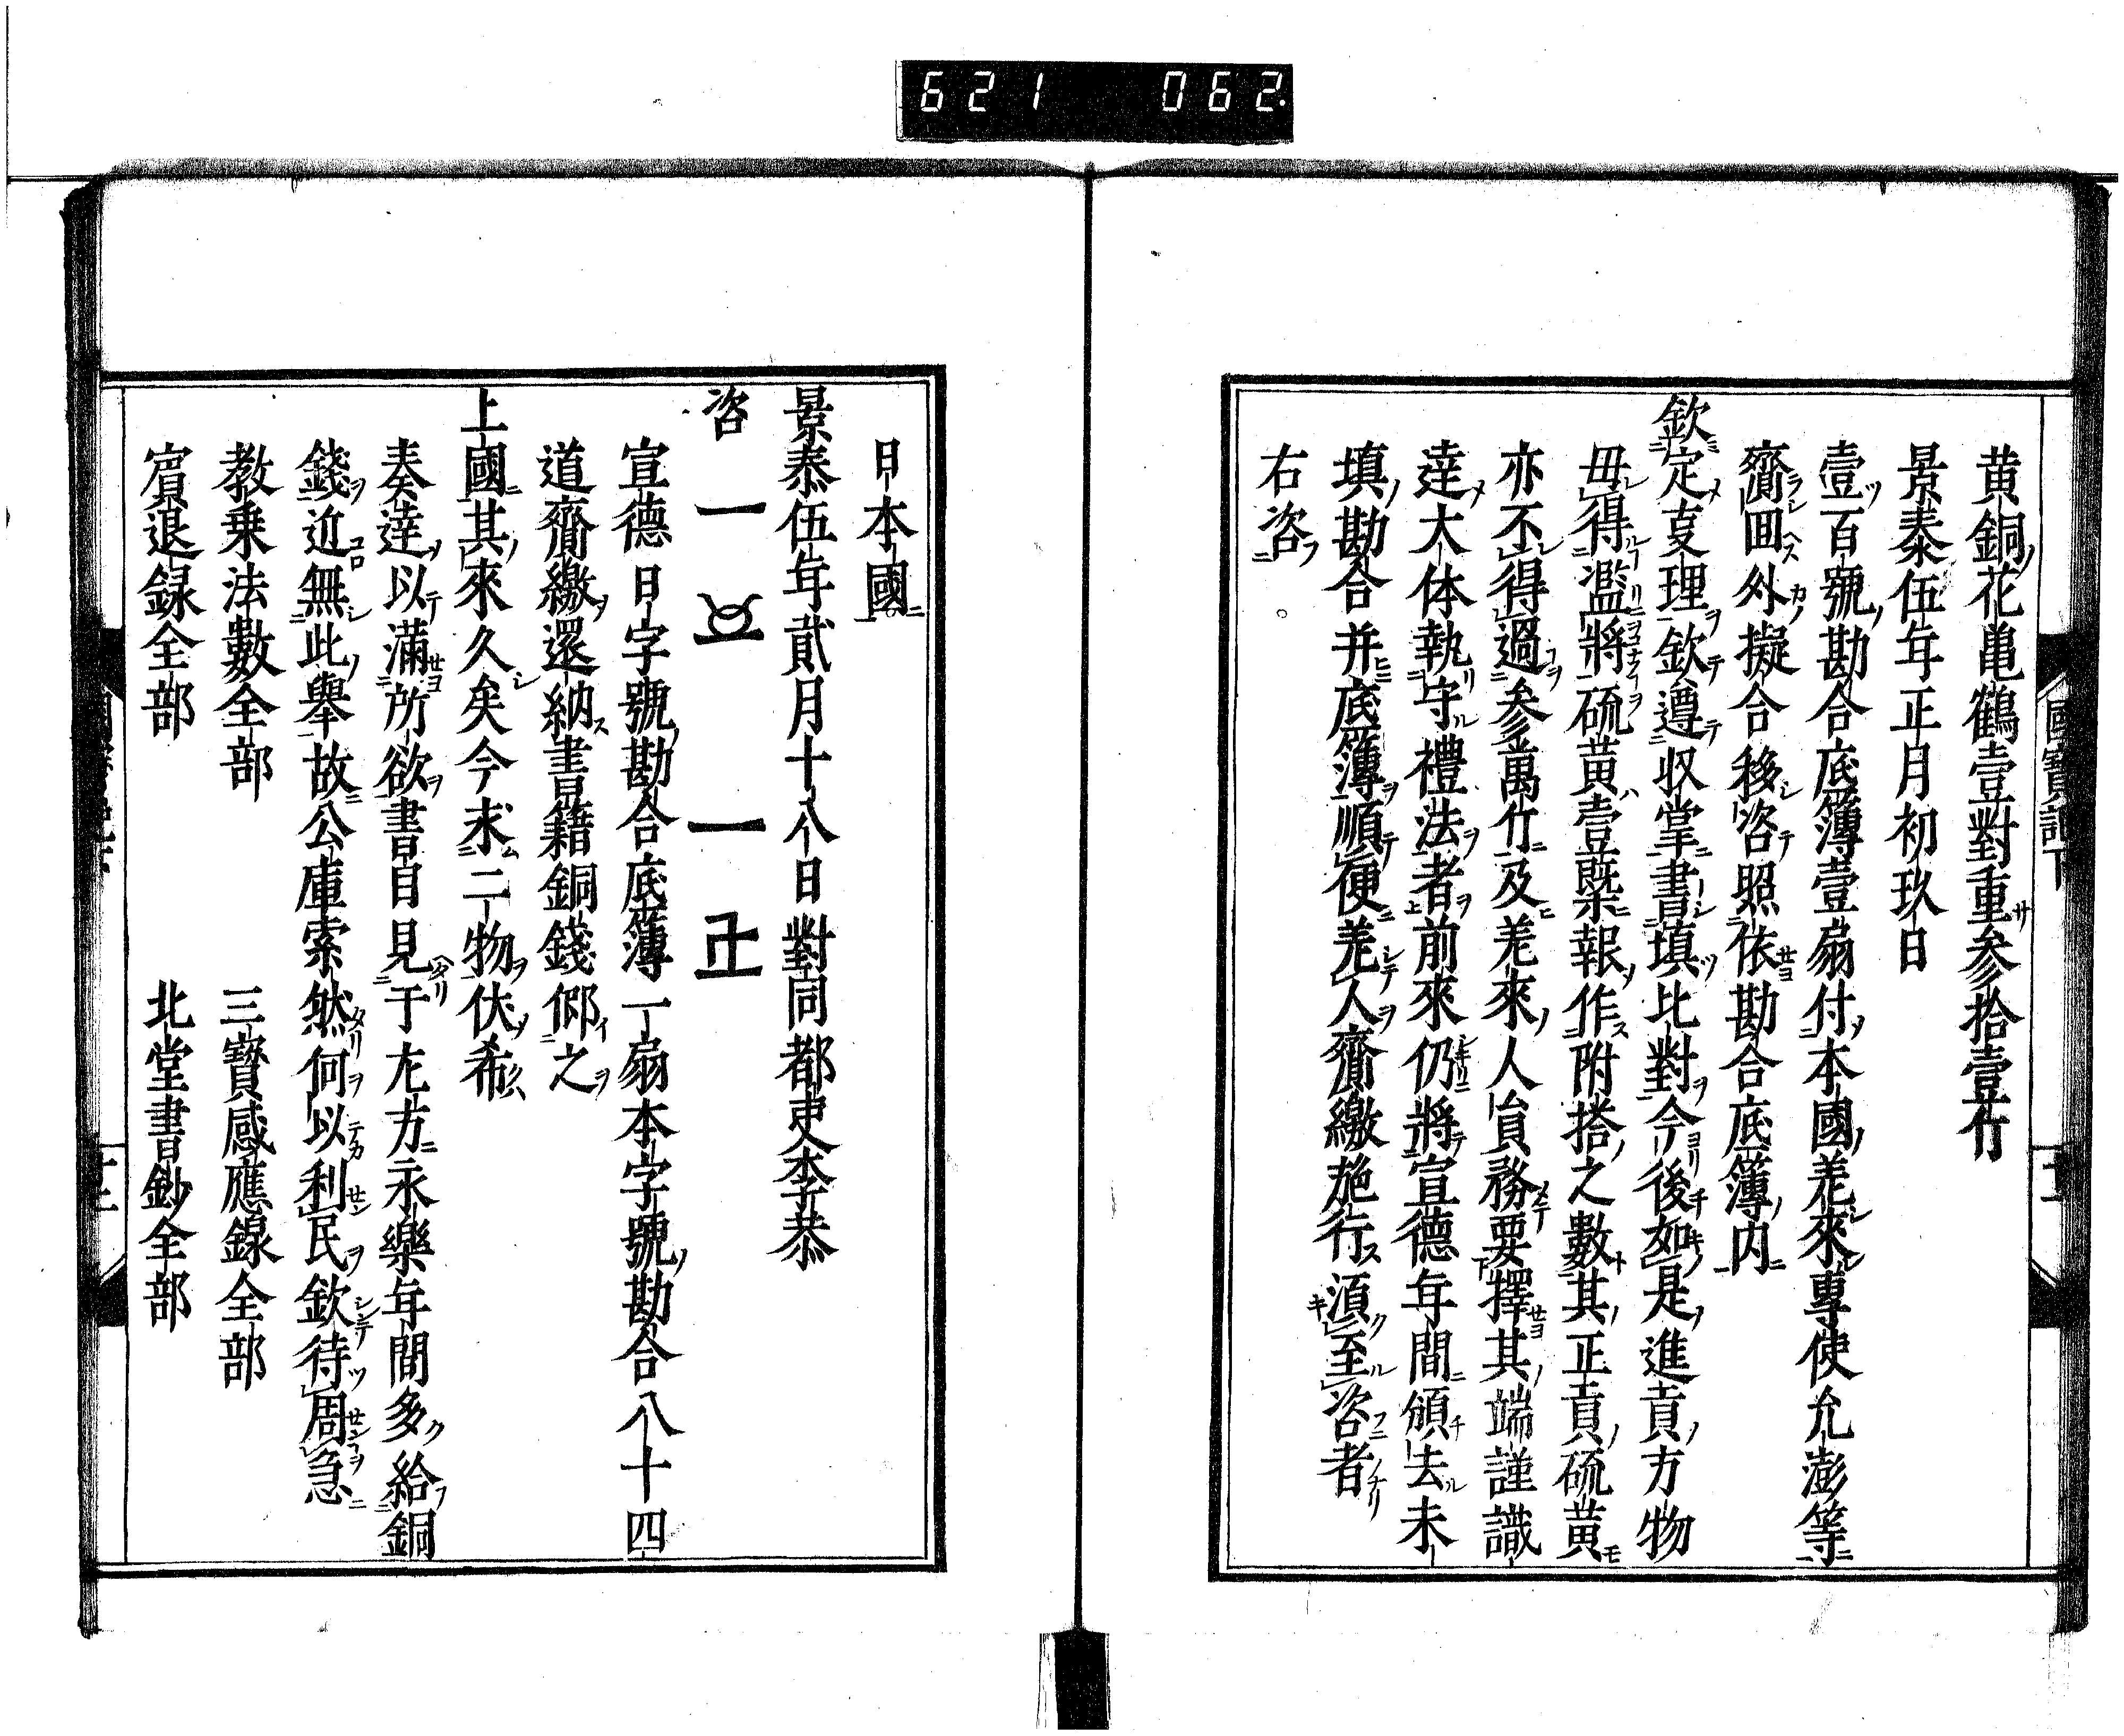 621 062
黄銅花亀鶴壹對重参拾壹竹
景泰伍年正月初玖日
壹百號勘合底簿壹扇付本國差來專使允澎等
齎回外擬合移咨照依勘合底簿内
欽定事理欽遵収掌書填比對今後如是進貢方物
毋得濫將硫黄壹槩報作附搭之數其正貢硫黄
亦不得過参萬竹及差來人員務要擇其端謹識
達大体執守禮法者前來仍將宣德年間頒去未
填勘合并底簿順便差人齎繳施行湏至咨者
右咨
日本國
景泰伍年貳月十八日對同都吏李恭
咨
宣德日字號勘合底簿一扇本字號勘合八十四
道齎繳還納書籍銅錢仰之
上國其來久矣今求二物伏希
奏達以滿所欲書目見于左方永樂年間多給銅
錢近無此舉故公庫索然何以利民欽待周急
教乗法數全部 三寳感應録全部
賓退録全部 北堂書鈔全部